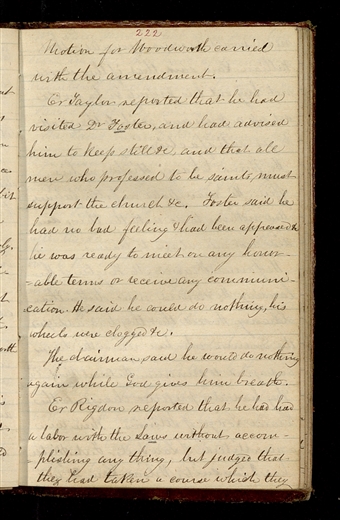 222
Motion for Woodworth carried
with the amendment.
Er Taylor reported that he had
visited Dr Foster, and had advised
him to keep still &c, and that all
men who professed to be saints, must
support the church &c. Foster said he
had no bad feeling & had been appeased &
he was ready to meet on any honor-
=able terms or receive any communi-
cation. He said he could do nothing, his
wheels were clogged &c.
The chairman said he would do nothing
again while God gives him breath.
Er Rigdon reported that he had had
a labor with the Laws without accom-
plishing any thing, but judged that
they had taken a course which they